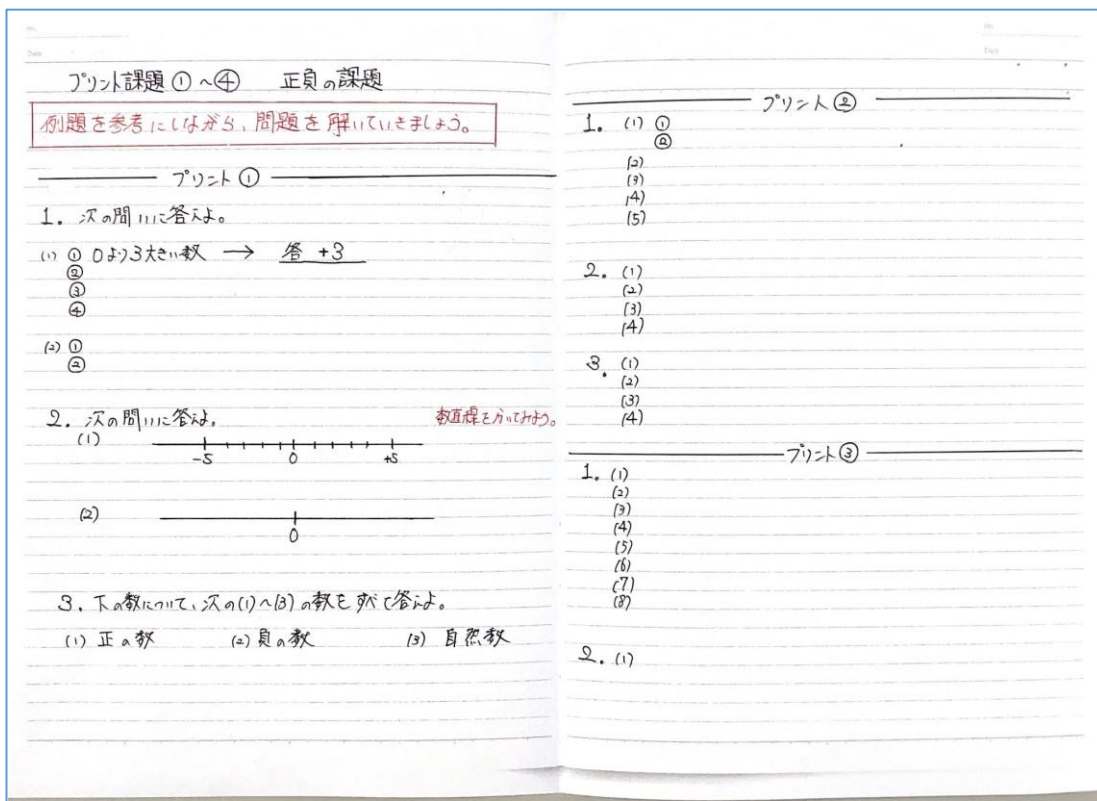 No.
Date
プリント課題①～④　正負の課題
例題を参考にしながら、問題を解いていきましょう。
プリント①
1. 次の問いに答えよ。
(1) ① 0より3大きい数 → 答 +3
②
③
④
(2) ①
②
2. 次の問いに答えよ。 数直線をかいてみよう。
(1)
-5 0 +5
(2)
0
3. 下の数について、次の(1)～(3)の数をすべて答えよ。
(1) 正の数 (2) 負の数 (3) 自然数
No.
Date
プリント②
1. (1) ①
②
(2)
(3)
(4)
(5)
2. (1)
(2)
(3)
(4)
3. (1)
(2)
(3)
(4)
プリント③
1. (1)
(2)
(3)
(4)
(5)
(6)
(7)
(8)
2. (1)